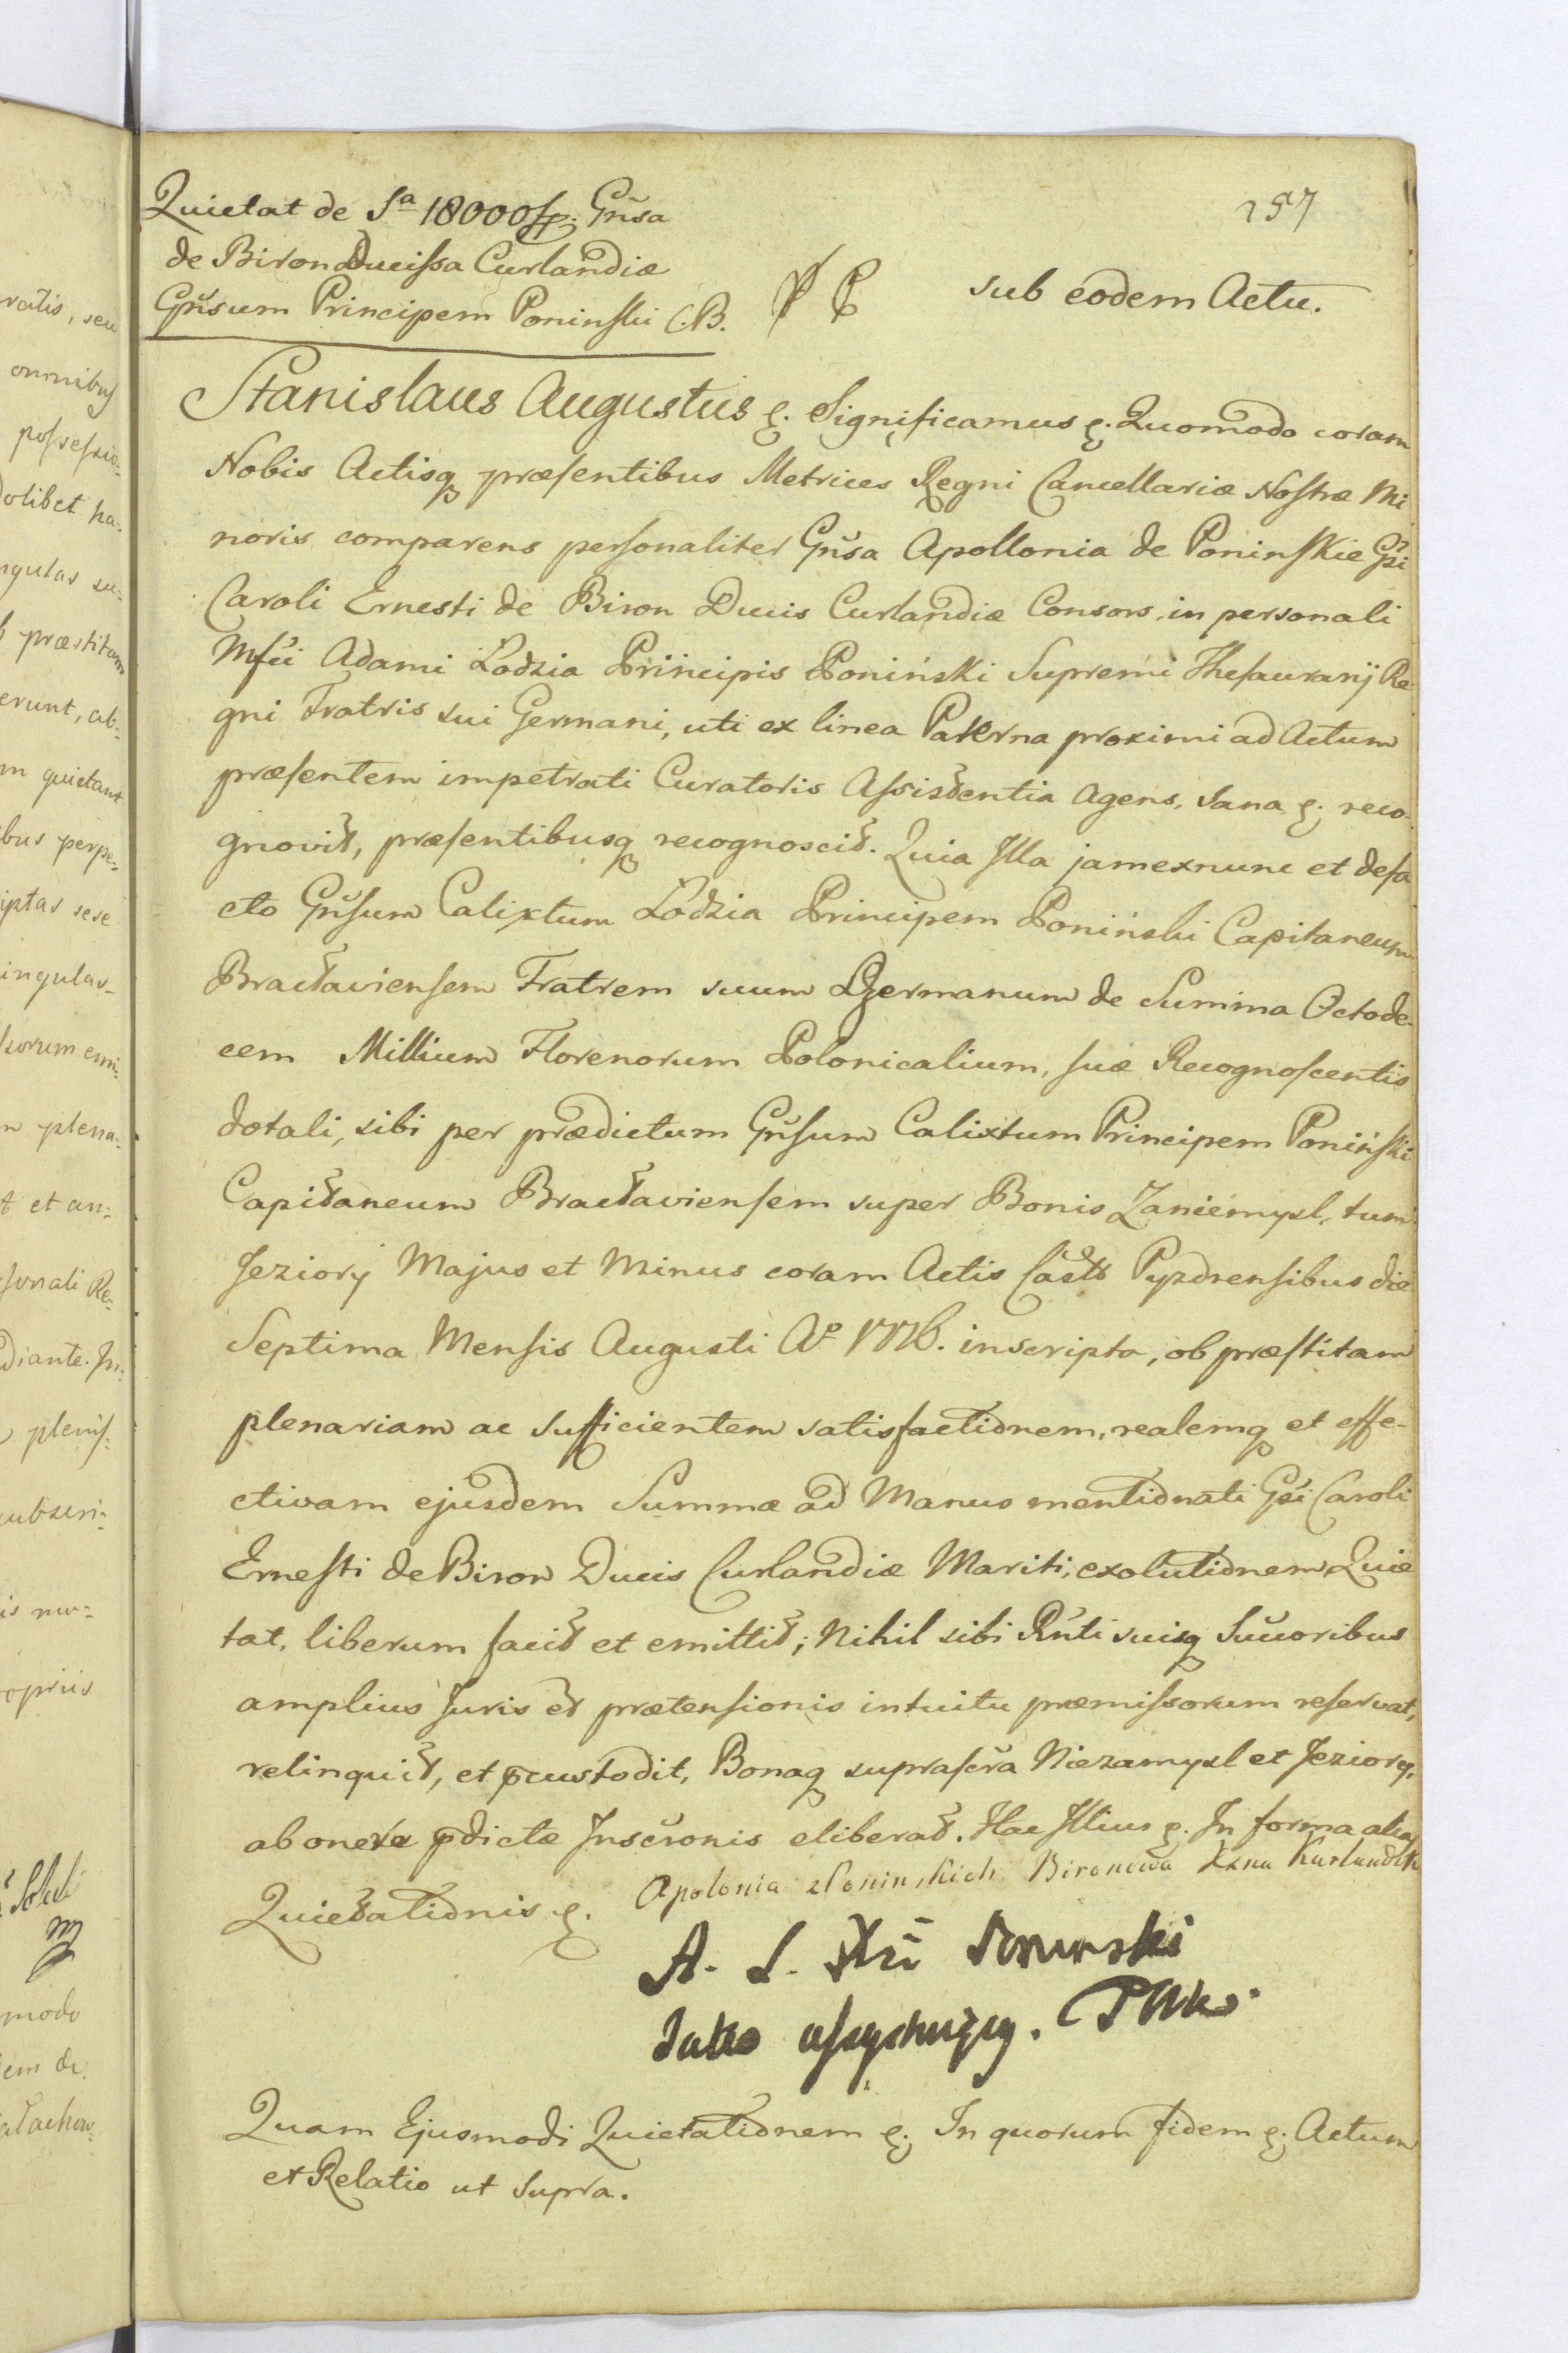 257
Quietat de Sa 18000 fp. Gnsa
de Biron Ducissa Curlandiæ
Gnsum Principem Poninski C.B.
sub eodem Actu.
Stanislaus Augustus &. Significamus &. Quomodo coram
Nobis Actisq præsentibus Metrices Regni Cancellariæ Nostræ Mi
noris comparens personaliter Gnsa Apollonia de Poninskie Gsi
Caroli Ernesti de Biron Ducis Curlandiæ Consors, in personali
Mfci Adami Lodzia Principis Poniński Supremi Thesaurarij Re
gni Fratris sui Germani, uti ex linea Paterna proximi ad Actum
præsentem impetrati Curatoris Assistentia Agens, sana &; reco-
gnovit, præsentibusq recognoscit. Quia Illa jam exnunc et defa
cto Gnsum Calixtum Łodzia Principem Poniński Capitaneum
Bracłaviensem Fratrem suum Germanum de Summa Octode-
cem Millium Florenorum Polonicalium, suæ Recognoscentis
dotali, sibi per prædictum Gnsum Calixtum Principem Poniński
Capitaneum Bracłaviensem super Bonis Zaniemysl, tum
Jeziory Majus et Minus coram Actis Castr Pyzdrensibus die
Septima Mensis Augusti Ao 1776. inscripta, ob præstitam
plenariam ac sufficientem satisfactionem, realemq et effe-
ctivam ejusdem Summæ ad Manus mentionati Gsi Caroli
Ernesti de Biron Ducis Curlandiæ Mariti, exolutionem Quie
tat, liberum facit et emittit; Nihil sibi Rnti suisq Sucoribus
amplius Juris et prætensionis intuitu præmissorum reservat,
relinquit, et pcustodit, Bonaq suprascra Niezamysl et Jeziory,
ab onere pdictæ Inscronis eliberat. Hac Illius &. In forma alias
Quietationis &.
Apolonia z Poninskich Bironowa Xzna Kurlandzk
A. Ł. Xże Poninski
Jako assystuiący.
Quam Ejusmodi Quietationem &; In quorum fidem &; Actum
et Relatio ut supra.